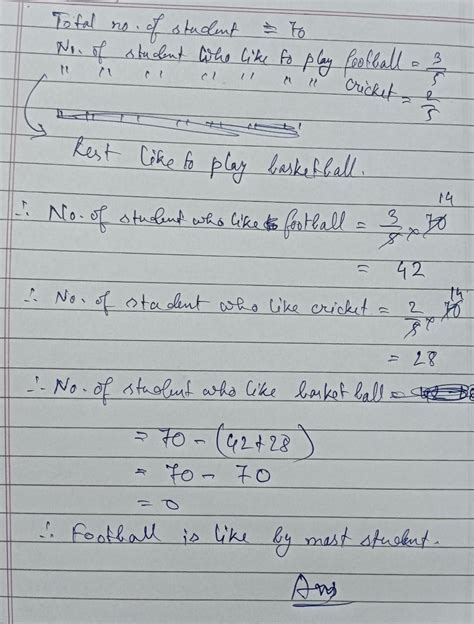 Total no. of student = 70
No. of student who like to play football = 3/5
" " " " " " " cricket = 2/5
Rest like to play basketball.
∴ No. of student who like to football = 3/5 × 70 14
= 42
∴ No. of student who like cricket = 2/5 × 70 14
= 28
∴ No. of student who like basket ball =
= 70 - (42+28)
= 70 - 70
= 0
∴ Football is like by most student.
Ans